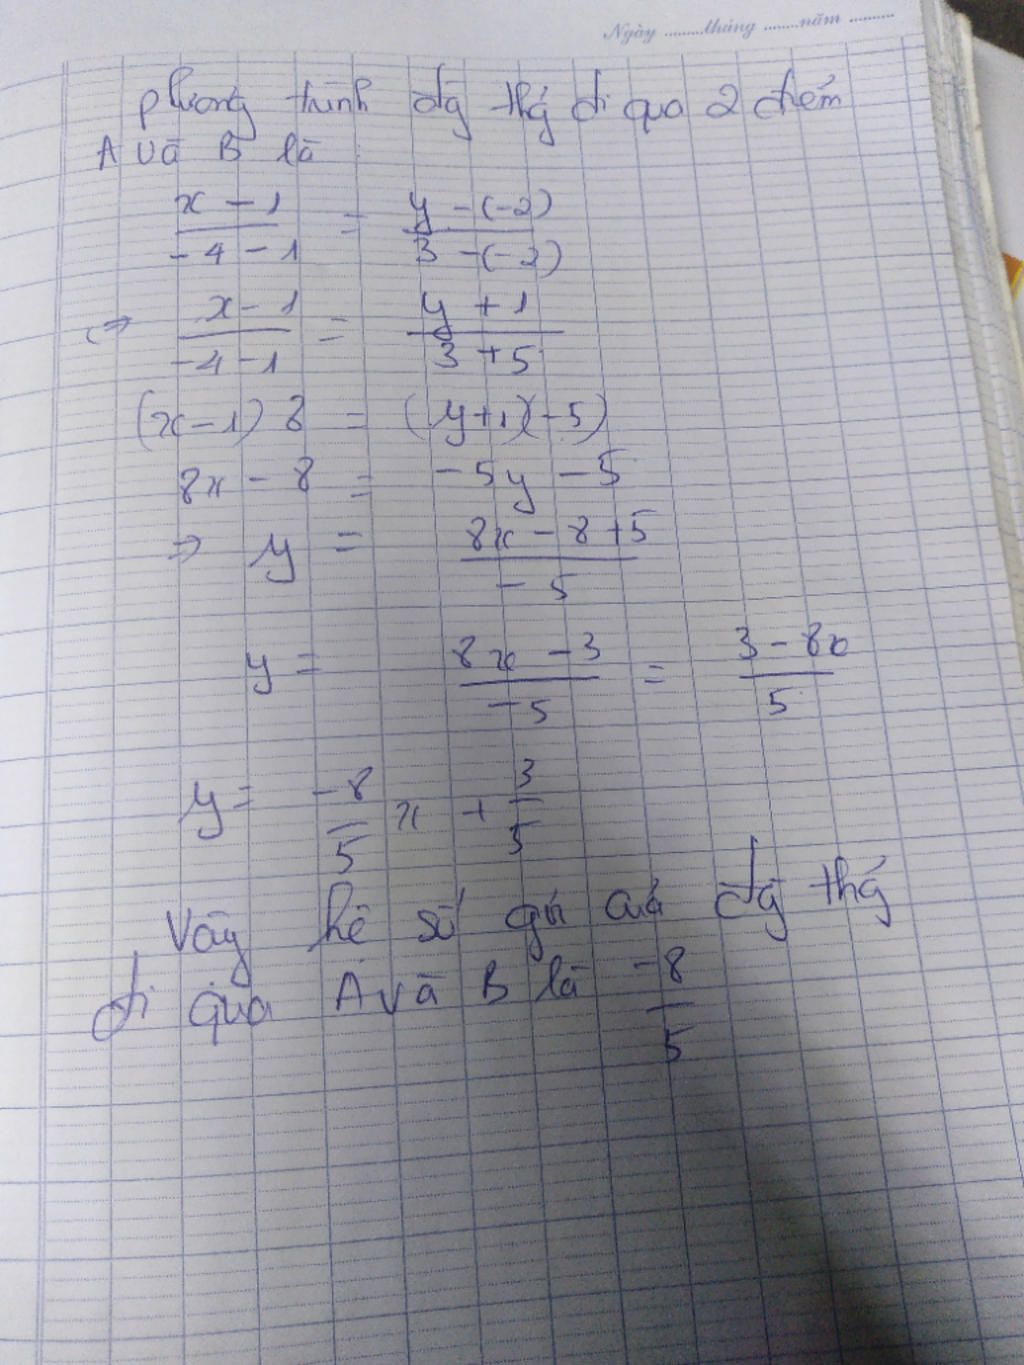 Ngày ........tháng .......năm .........
phương trình đg thg đi qua 2 điểm
A và B là
x - 1 / -4 - 1 = y - (-2) / 3 - (-2)
<=> x - 1 / -4 - 1 = y + 1 / 3 + 5
(x - 1) 8 = (y + 1)(-5)
8x - 8 = -5y - 5
=> y = 8x - 8 + 5 / -5
y = 8x - 3 / -5 = 3 - 8x / 5
y = -8/5 x + 3/5
Vậy hệ số góc của đg thg
đi qua A và B là -8/5